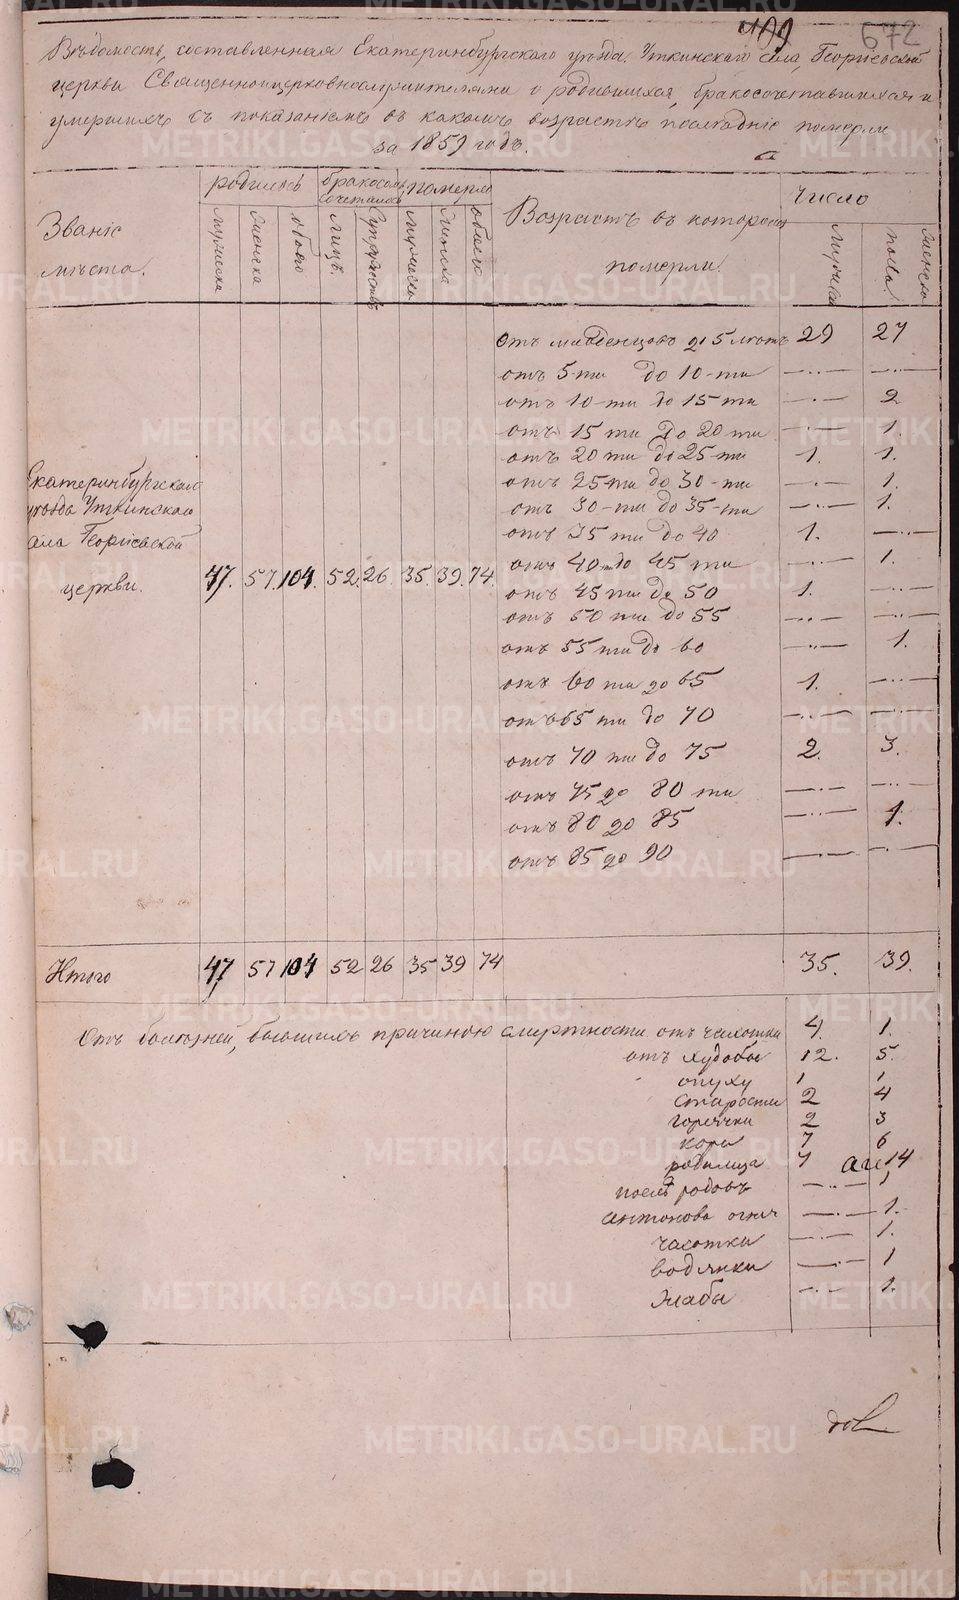 672
Вѣдомость, составленная Екатеринбургскаго уѣзда, Уткинскаго села, Георгіевской
церкви Священноцерковнослужителями о родившихся, бракосочетавшихся и
умершихъ съ показаніемъ въ какомъ возрастѣ послѣдніе померли
за 1859 годъ.
Званіе мѣста.
родилось бракосочеталось померли
Возрастъ въ которомъ померли.
Число
мужеска женска обоего лицъ супружествъ мужеска женска обоего
мужска пола женска
отъ младенцовъ до 5 лѣтъ 29 27
отъ 5-ти до 10-ти —··— —··—
отъ 10-ти до 15 ти —··— 2
отъ 15 ти до 20 ти —··— 1.
отъ 20 ти до 25 ти 1. 1.
отъ 25 ти до 30-ти —··— 1.
отъ 30-ти до 35-ти —··— 1.
отъ 35 ти до 40 1. —··—
отъ 40 ти до 45 ти —··— 1.
отъ 45 ти до 50 1. —··—
отъ 50 ти до 55 —··— —··—
отъ 55 ти до 60 —··— 1.
отъ 60 ти до 65 1. —··—
отъ 65 ти до 70 —··— —··—
отъ 70 ти до 75 2. 3.
отъ 75 до 80 ти —··— —··—
отъ 80 до 85 —··— 1.
отъ 85 до 90 —··— —··—
Екатеринбургскаго
уѣзда Уткинскаго
села Георгіевской
церкви. 47. 57. 104. 52. 26. 35. 39. 74.
Итого 47 57 104 52 26 35 39 74 35. 39.
Отъ болѣзней, бывшихъ причиною смертности отъ чахотки 4. 1.
отъ худобы 12. 5.
опуху 1 1
старости 2 4
горячки 2 3
кори 7 6
родимца 7 14
послѣ родовъ —··— 1
антонова огня —··— 1.
чахотки —··— 1.
водянки —··— 1
жабы —··— 1.
METRIKI.GASO-URAL.RU